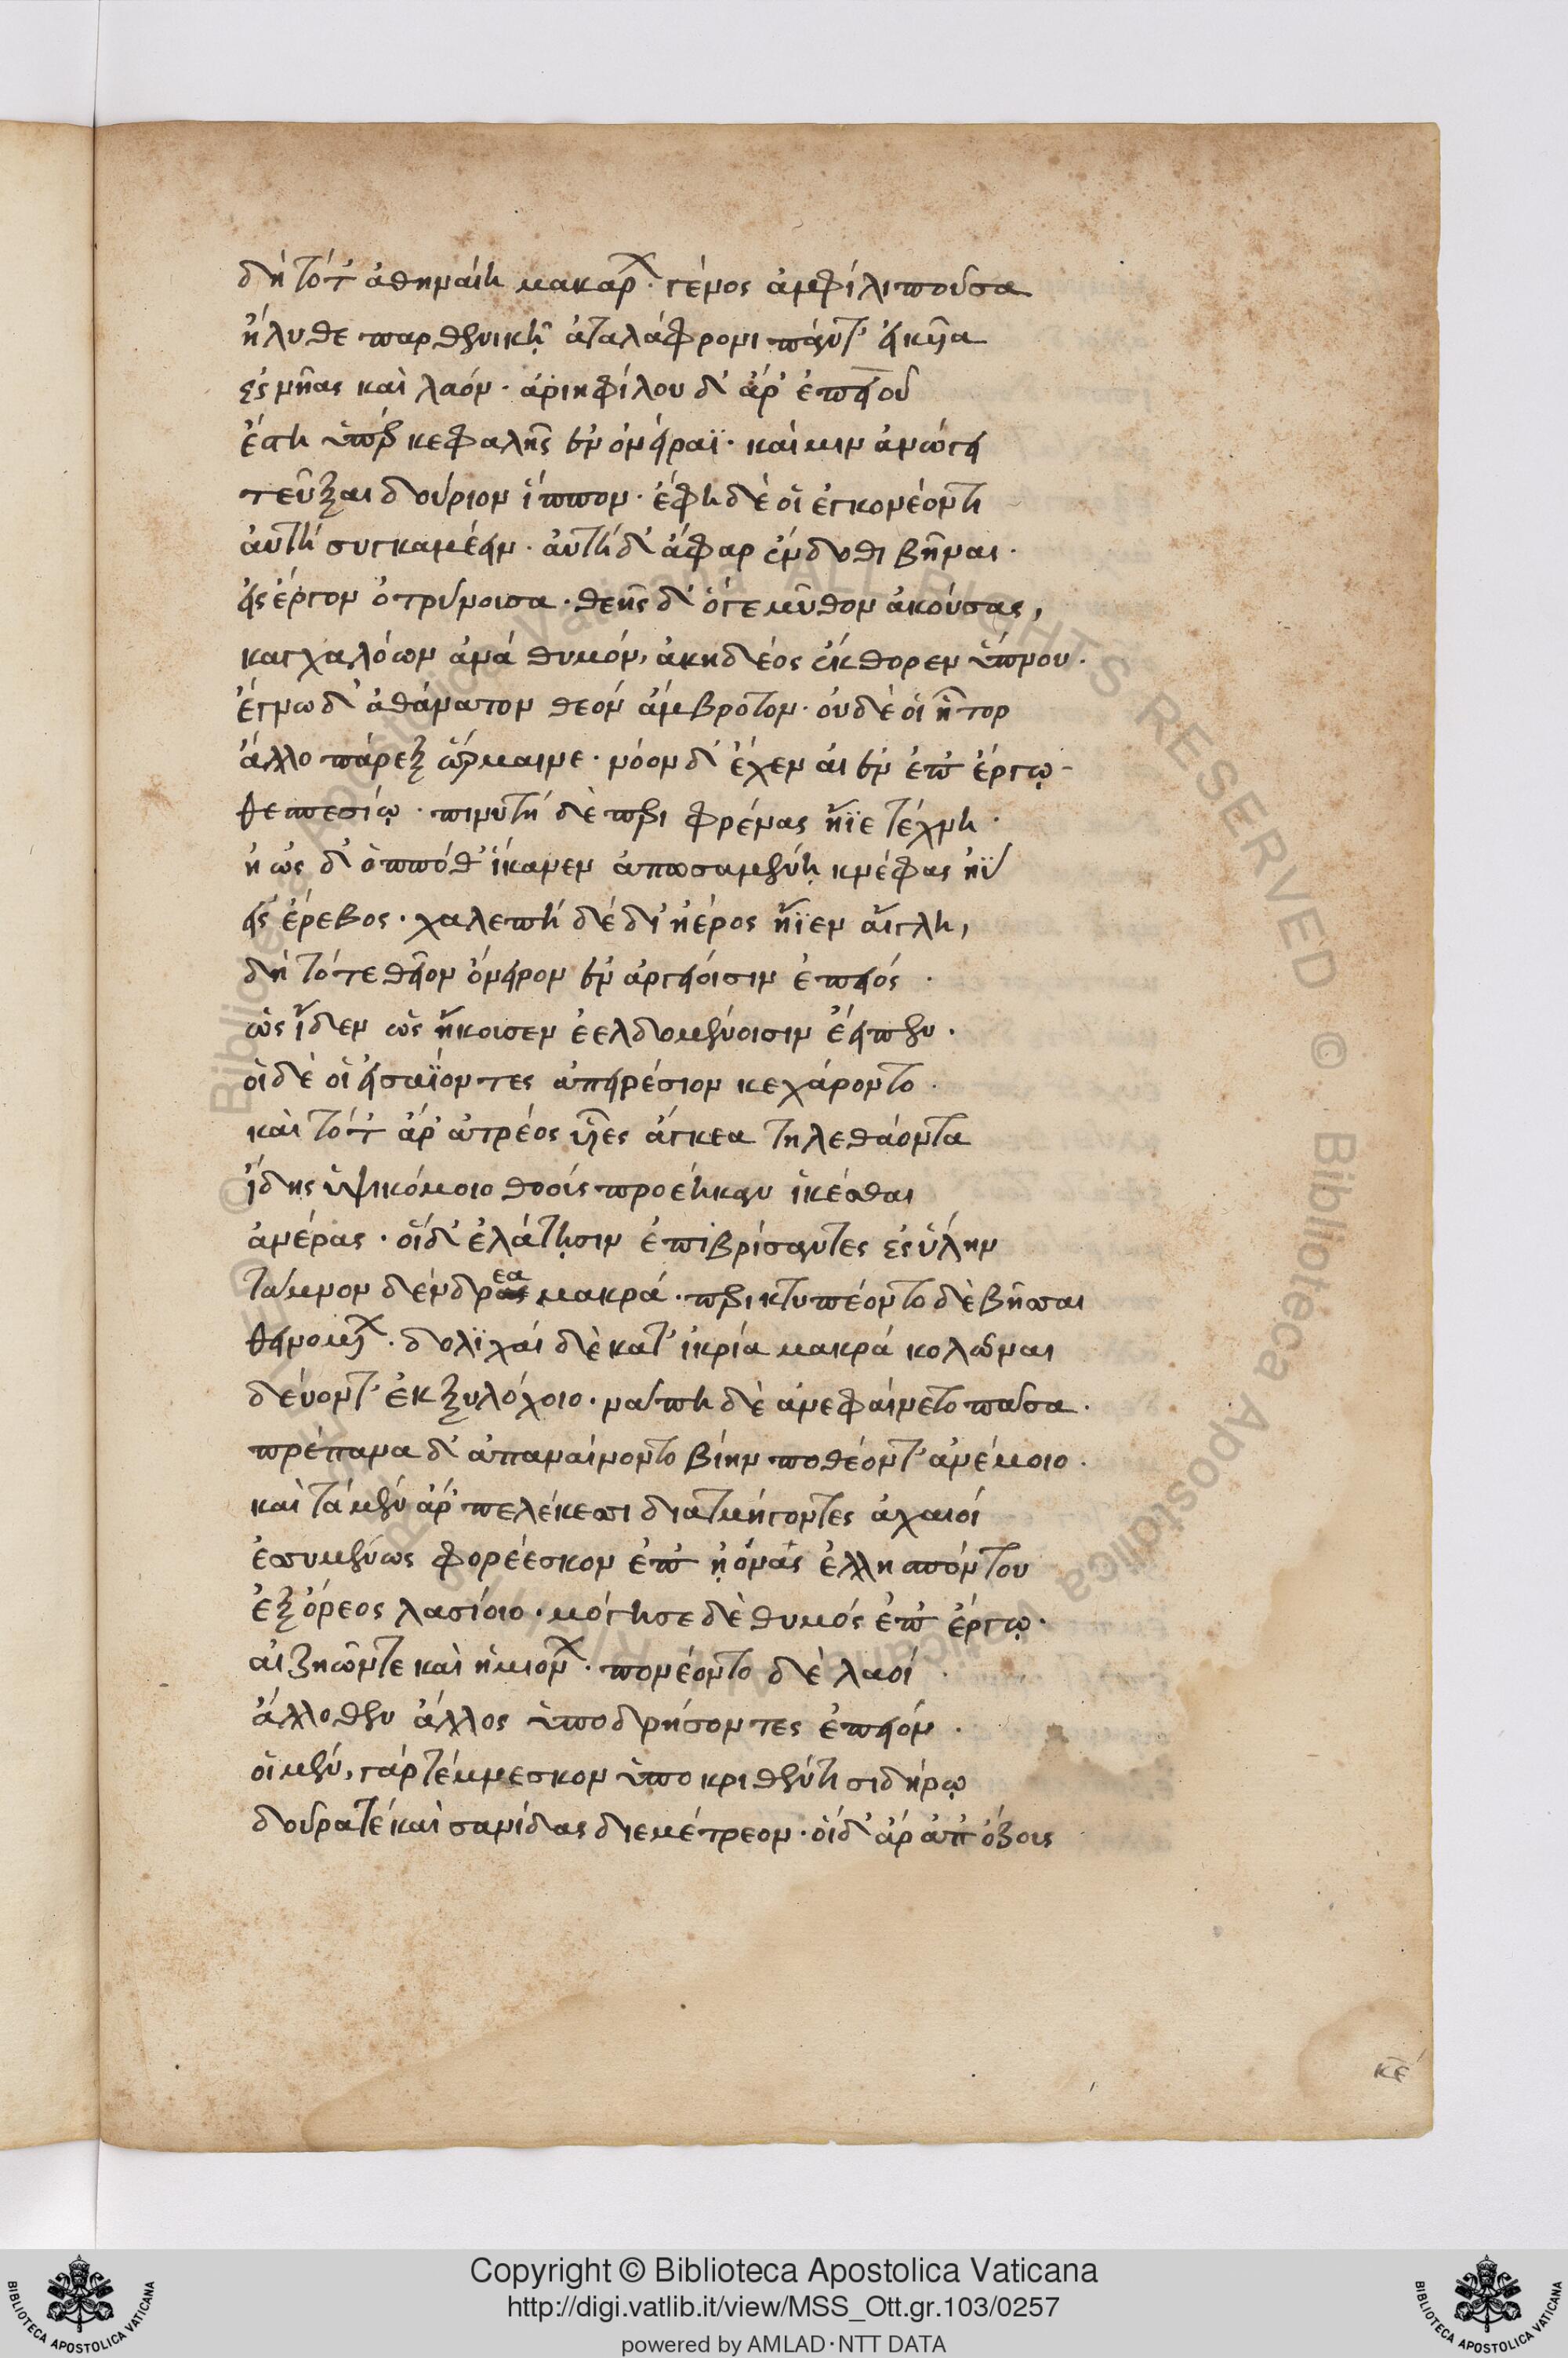 δὴ τότ' ἀθηναίη μακάρων γένος ἀμφιλιποῦσα
ἤλυθε παρθενικῇ ἀταλάφρονι πάντ' εἰκυῖα
ἐς νῆας καὶ λαόν· ἀρηιφίλου δ' ἄρ' ἐπειοῦ
ἔστη ὑπὲρ κεφαλῆς ἐν ὀνείραϊ· καί μιν ἀνώγει
τεῦξαι δούριον ἵππον· ἔφη δέ οἱ ἐγκονέοντι
αὐτὴ συγκαμέειν· αὐτὴ δ' ἄφαρ ἔνδοθι βῆναι·
εἰς ἔργον ὀτρύνοισα· θεῆς δ' ὅγε μῦθον ἀκούσας,
καγχαλόων ἀνὰ θυμόν, ἀκηδέος ἔκθορεν ὕπνου·
ἔγνω δ' ἀθάνατον θεὸν ἄμβροτον· οὐδέ οἱ ἦτορ
ἄλλο πάρεξ ὥρμαινε· νόον δ' ἔχεν αἰὲν ἐπ' ἔργῳ
θεπεσίῳ· πινυτὴ δὲ περὶ φρένας ἤϊε τέχνη·
ἠὼς δ' ὁππόθ' ἵκανεν ἀπωσαμένη κνέφας ἠῢ
εἰς ἔρεβος· χαλεπὴ δὲ δι' ἠέρος ἤϊεν αἴγλη,
δὴ τότε θεῖον ὄνειρον ἐν ἀργείοισιν ἐπειός·
ὡς ἴδεν ὡς ἤκουσεν ἐελδομένοισιν ἔειπεν·
οἱ δέ οἱ εἰσαΐοντες ἀπειρέσιον κεχάροντο·
καὶ τότ' ἄρ' ἀτρέος υἷες ἄγκεα τηλεθάοντα
ἴδης ὑψικόμοιο θοοὺς προέηκαν ἱκέσθαι
ἀνέρας· οἵδ' ἐλάτῃσιν ἐπιβρίσαντες ἐς ὕλην
τάμνον δένδρεα μακρά· περικτυπέοντο δὲ βῆσσαι
θεινομένων· δολιχαὶ δὲ κατ' ἰκρία μακρὰ κολῶναι
δεύοντ' ἐκ ξυλόχοιο· νάπη δὲ ἀνεφαίνετο πᾶσα·
πρέπανα δ' ἀπαναίνοντο βίην ποθέοντ' ἀνέμοιο·
καὶ τὰ μὲν ἄρ' πελέκεσσι διατμήγοντες ἀχαιοί
ἐσσυμένως φορέεσκον ἐπ' ᾐόνας ἑλλησπόντου
ἐξ ὄρεος λασίοιο· μόγησε δὲ θυμὸς ἐπ' ἔργῳ·
αἰζηῶν τε καὶ ἡμιόνων· πονέοντο δὲ λαοί·
ἄλλοθεν ἄλλος ὑποδρήσοντες ἐπειόν·
οἱ μέν, γὰρ τέμνεσκον ὑποκριθέντι σιδήρῳ
δούρατέ καὶ σανίδας διεμέτρεον· οἱ δ' ἄρ ἀπ' ὄζους
κε
Copyright © Biblioteca Apostolica Vaticana
http://digi.vatlib.it/view/MSS_Ott.gr.103/0257
powered by AMLAD·NTT DATA